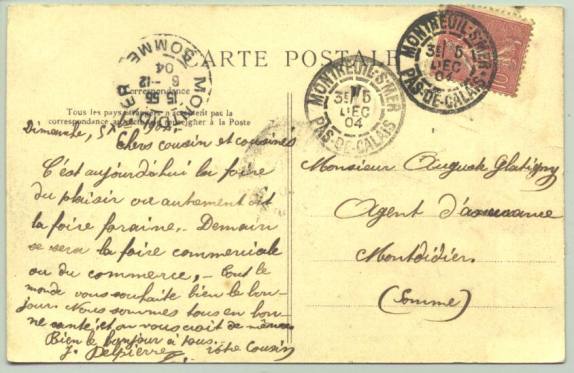 CARTE POSTALE
Correspondance
Tous les pays étrangers n'acceptent pas la
correspondance au recto se renseigner à la Poste
MONTREUIL-S-MER
3E 5
DEC
04
PAS-DE-CALAIS
MONTREUIL-S-MER
3E 5
DEC
04
PAS-DE-CALAIS
SOMME
15 55
6 -12
04
Dimanche, 5 Xbre 1904,
Chers cousin et cousines
C'est aujourd'hui la foire
du plaisir ou autrement dit
la foire foraine. - Demain
se sera la foire commerciale
ou du commerce, - Tout le
monde vous souhaite bien le bon-
jour. Nous sommes tous en bon-
ne santé, et on vous croit de même
Bien le bonjour à tous.
J. Delpierre, votre Cousin
Monsieur Auguste Glatigny
Agent d'assurance
Montdidier.
(Somme)